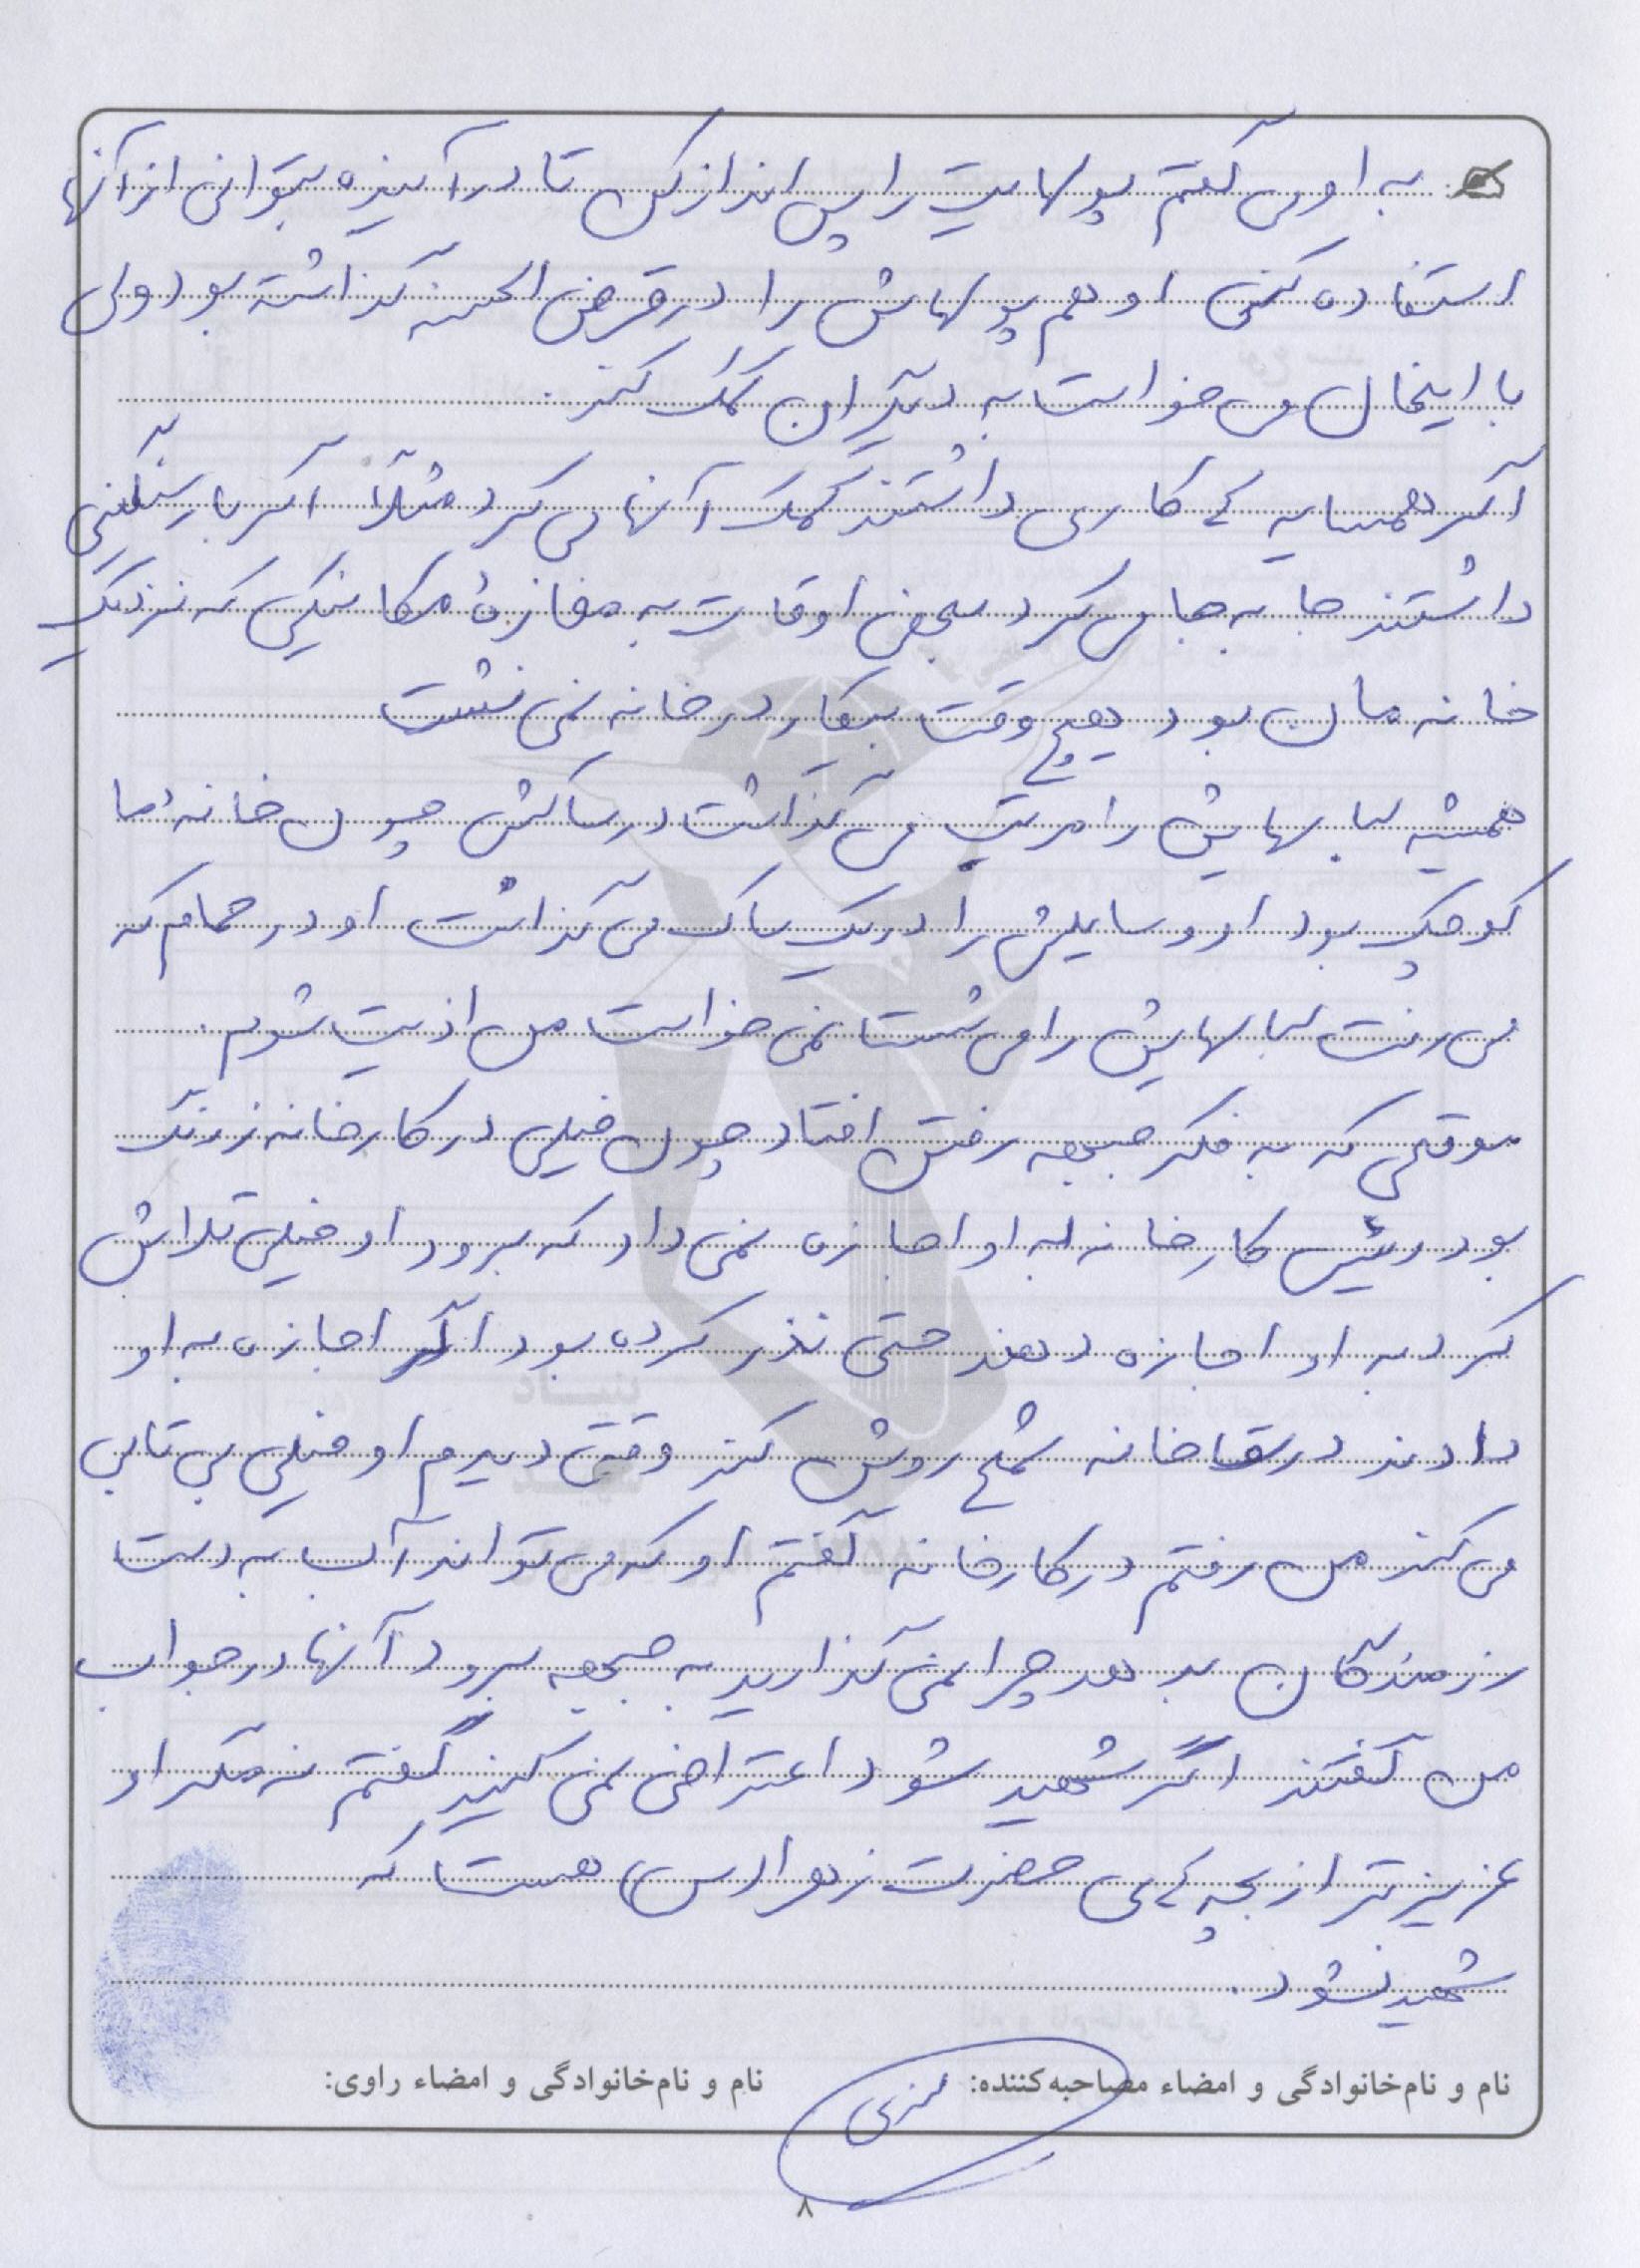 به او می گفتم پولهایت را پس انداز کن تا در آینده بتوانی از آنها
استفاده کنی او هم پولهاش را در قرض الحسنه گذاشته بود ولی
با اینحال می خواست به دیگران کمک کند.
اگر همسایه ی کاری داشتند کمک آنها می کرد مثلاً اگر بار سنگینی
داشتند جا به جا می کرد بعضی اوقات به مغازهٔ مکانیکی که نزدیک
خانه مان بود هیچ وقت بیکار در خانه نمی نشست
همیشه لباسهایش را مرتب می گذاشت در ساکش چون خانه ما
کوچک بود او وسایلش را در یک ساک می گذاشت او در حمام که
می رفت لباسهایش را می شست نمی خواست من اذیت شوم.
موقعی که به فکر جبهه رفتن افتاد چون خیلی در کارخانه زرنگ
بود رئیس کارخانه به او اجازه نمی داد که برود او خیلی تلاش
کرد به او اجازه دهند حتی نذر کرده بود اگر اجازه به او
دادند در سقاخانه شمع روشن کند وقتی دیدم او خیلی بی تابی
می کند من رفتم در کارخانه گفتم او که می تواند آب به دست
رزمندگان بدهد چرا نمی گذارید به جبهه برود آنها در جواب
من گفتند اگر شهید شود اعتراضی نمی کنید گفتم نه مگر او
عزیزتر از بچه ی حضرت زهرا (س) هست که
شهید نشود.
نام و نام‌خانوادگی و امضاء مصاحبه‌کننده: نام و نام‌خانوادگی و امضاء راوی:
۸